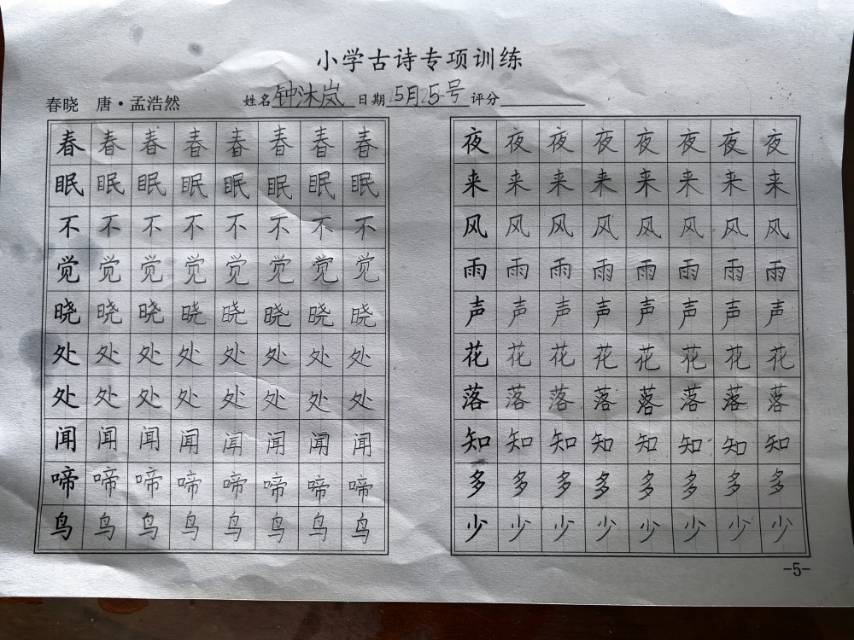 小学古诗专项训练
春晓 唐·孟浩然 姓名 钟沐岚 日期 5月25号 评分
春春春春春春春春
眠眠眠眠眠眠眠眠
不不不不不不不不
觉觉觉觉觉觉觉觉
晓晓晓晓晓晓晓晓
处处处处处处处处
处处处处处处处处
闻闻闻闻闻闻闻闻
啼啼啼啼啼啼啼啼
鸟鸟鸟鸟鸟鸟鸟鸟
夜夜夜夜夜夜夜夜
来来来来来来来来
风风风风风风风风
雨雨雨雨雨雨雨雨
声声声声声声声声
花花花花花花花花
落落落落落落落落
知知知知知知知知
多多多多多多多多
少少少少少少少少
-5-